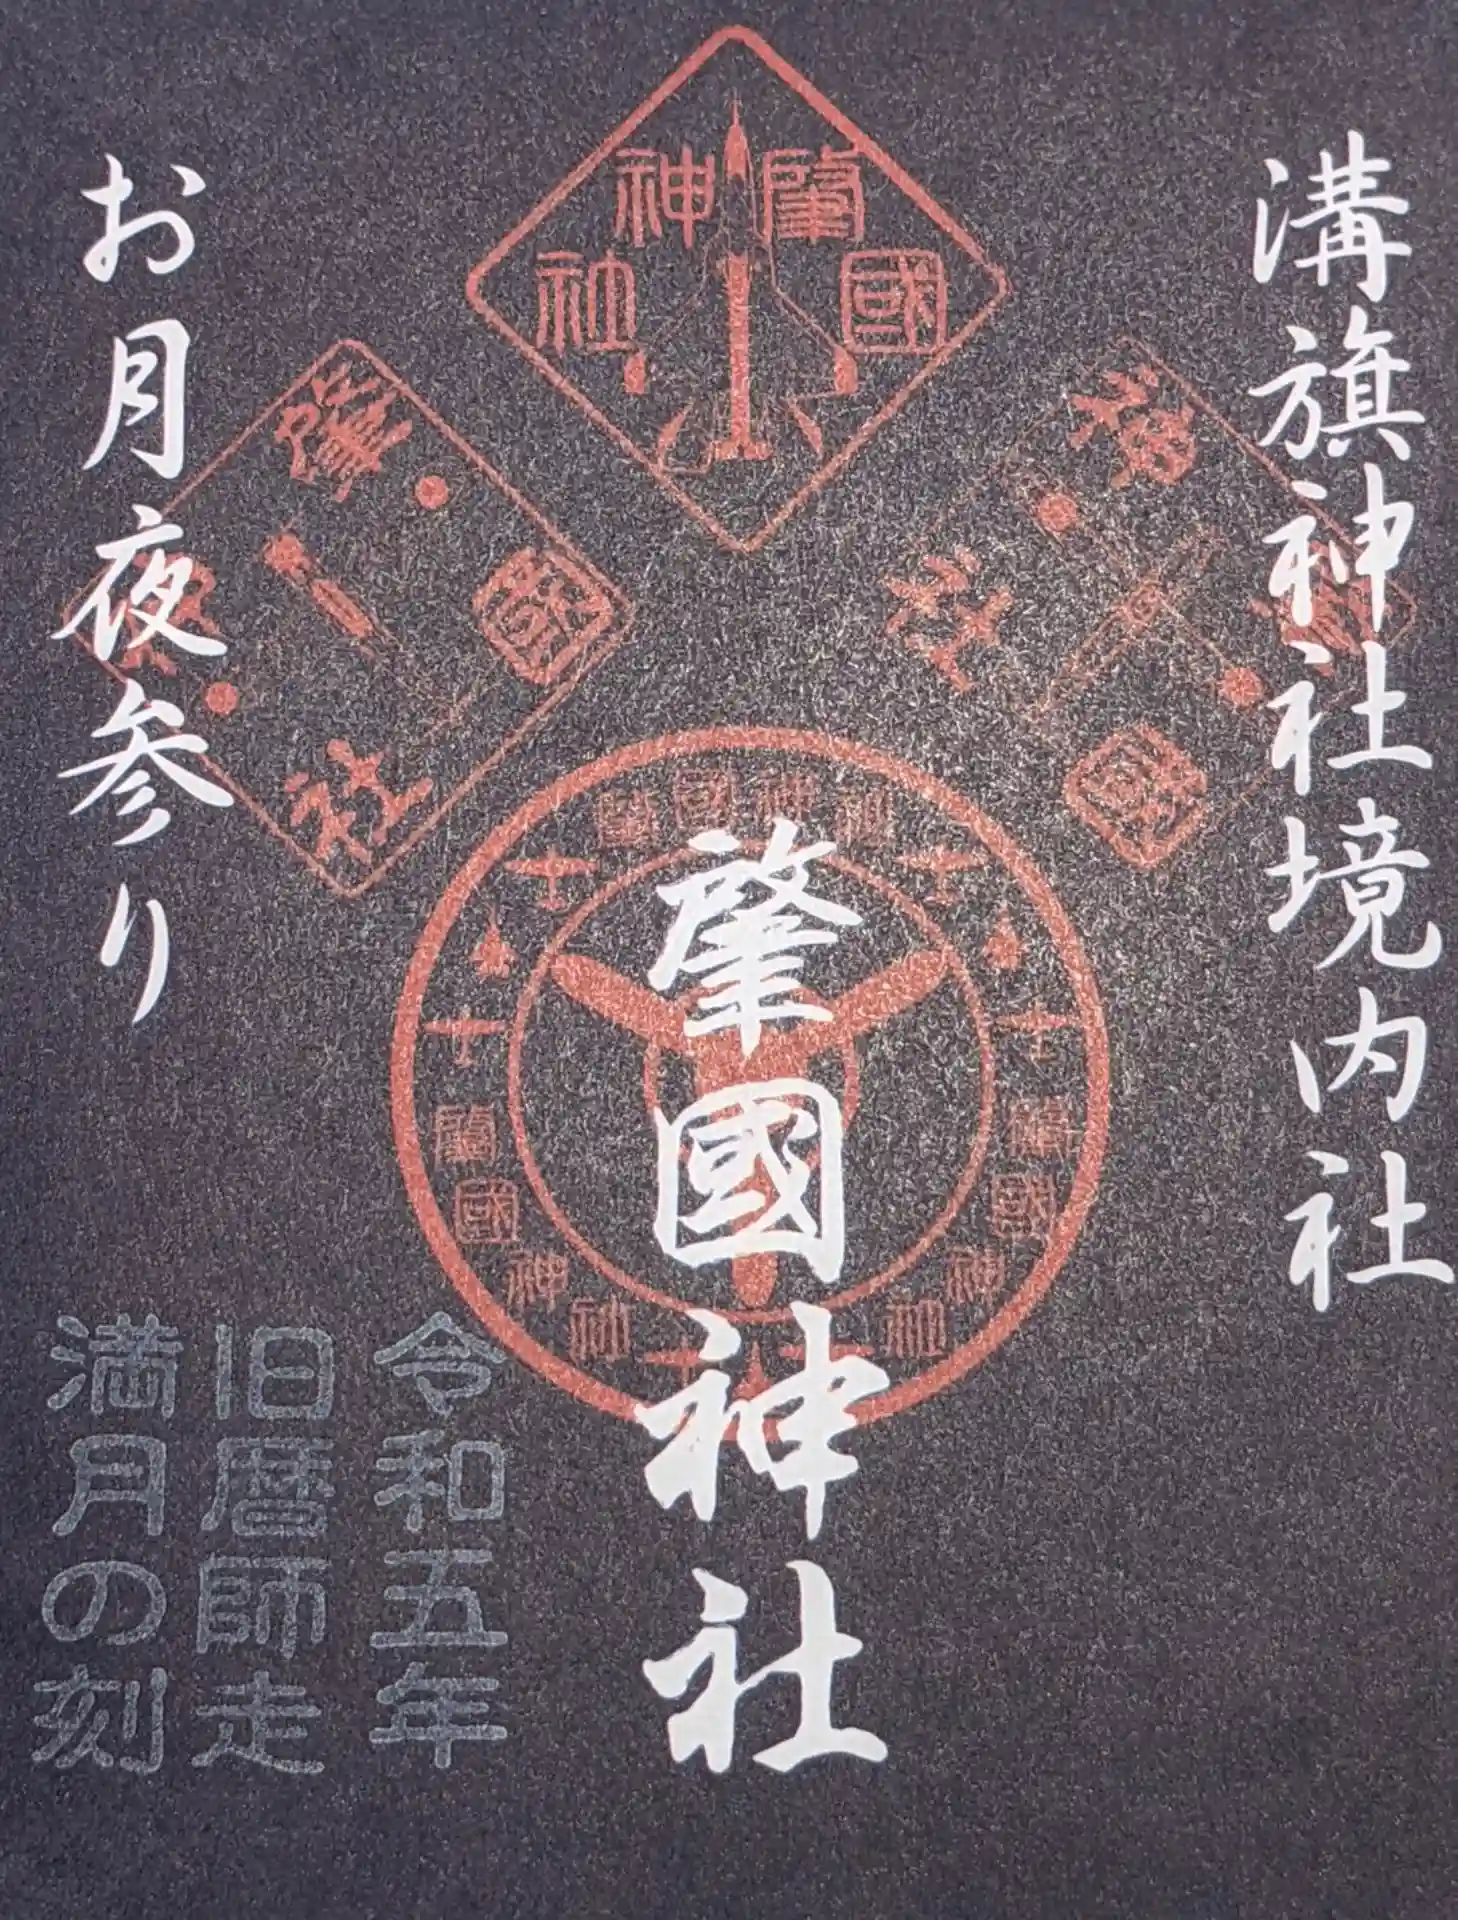 溝旗神社境内社
肇國神社
お月夜参り
令和五年
旧暦師走
満月の刻
肇國神社
肇國神社
肇國神社
肇國神社
肇國神社
肇國神社